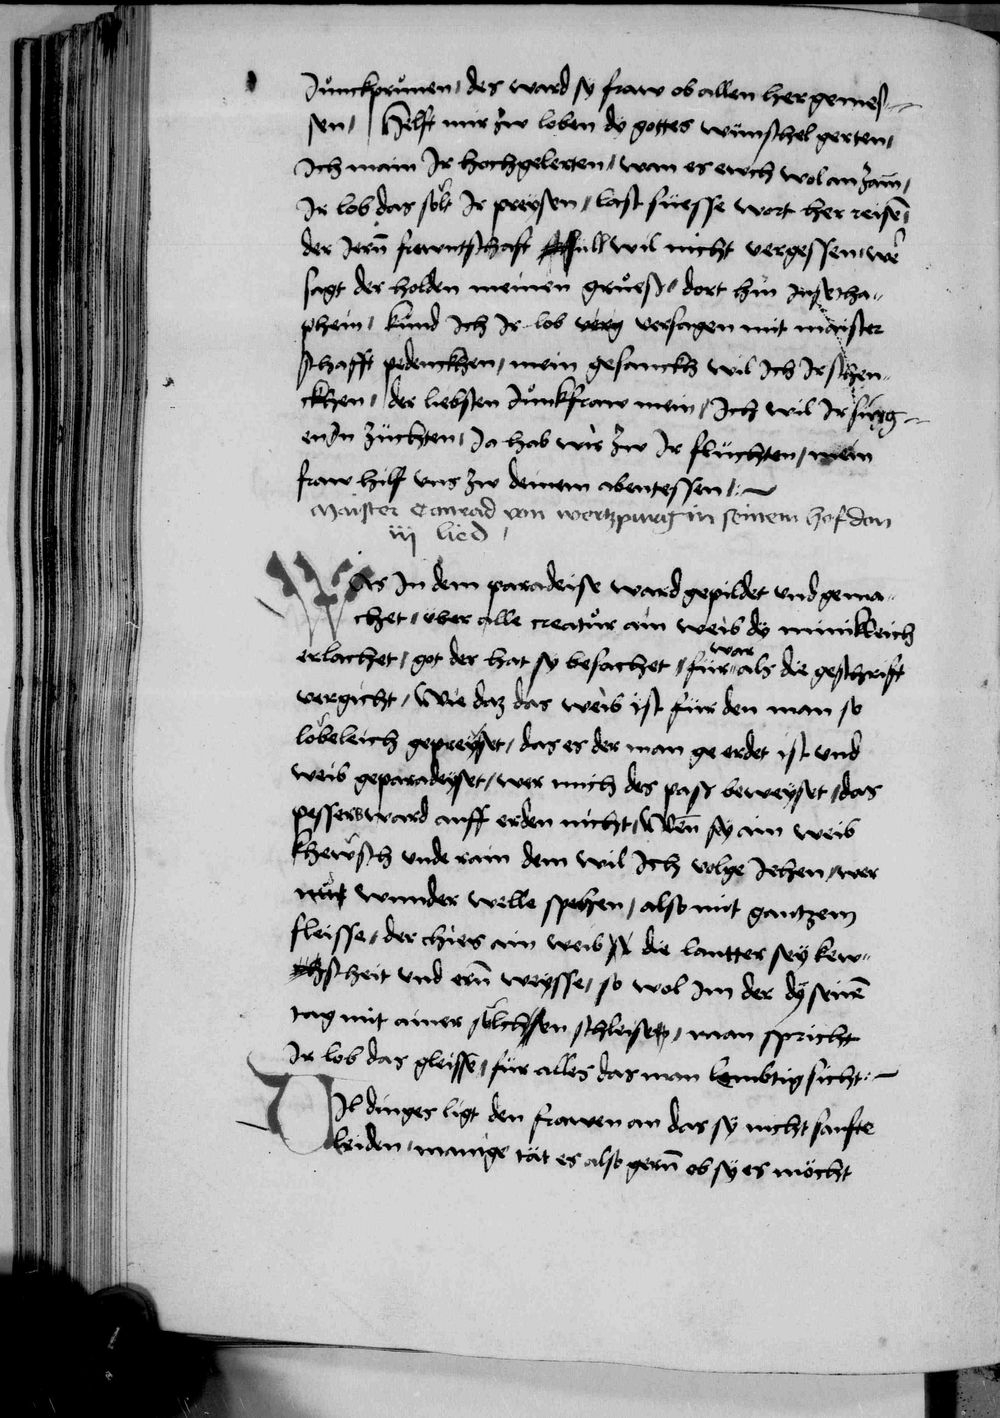 Junckprunen / des ward sy fraw ob allen her gemes-
sen / Helft mir zw loben dy gottes wünschel gerten /
Ich main Ir hochgelerten / wan es ewch wol an zam /
Ir lob das solt Ir preysen / last süesse wort her reisen /
der Iern frewntschaft all wil nicht vergessen / wer
sagt der holden meinen gruess / dort hin In
phein / kund Ich Ir lob versagen mit maister
schafft pedenckhen / mein gesanckh wil Ich Ir schen-
ckhen / der liebsten Junkfraw mein / Ich wil Ir sing-
en In züchten / Ia hab wir zw Ir fluchten / mein
fraw hilf vns zw deinem abentessen /:~
Maister Conrad von wertzpurg in seinem hof don
iij lied /
Was In dem paradeise ward gepildet vnd gema-
chet / uber alle creatur ain weib dy minikleich
erlachet / got der hat sy besachet / für war als die geschrift
vergicht / Wie daz das weib ist für den man so
lobeleich gepreyset / das es der man ge erdet ist vnd
weib geparadeyset / wer mich des pas beweyset / das
pessers ward auff erden nicht / Wen sy ain weib
khewsch vnde rain dem wil Ich volge Iehen / wer
nur wunder welle spehen / also mit gantzem
fleisse / der chies ain weib die lautter sey kew-
scheit vnd ern weysse / so wol Im der dy seinen
tag mit ainer solchen schleisen / man spricht
Ir lob das gleissen / für alles das man lembtig sicht :~
Vil dinges ligt den frawen an das sy nicht sanfte
leiden / manige tät es also gern ob sy es möcht